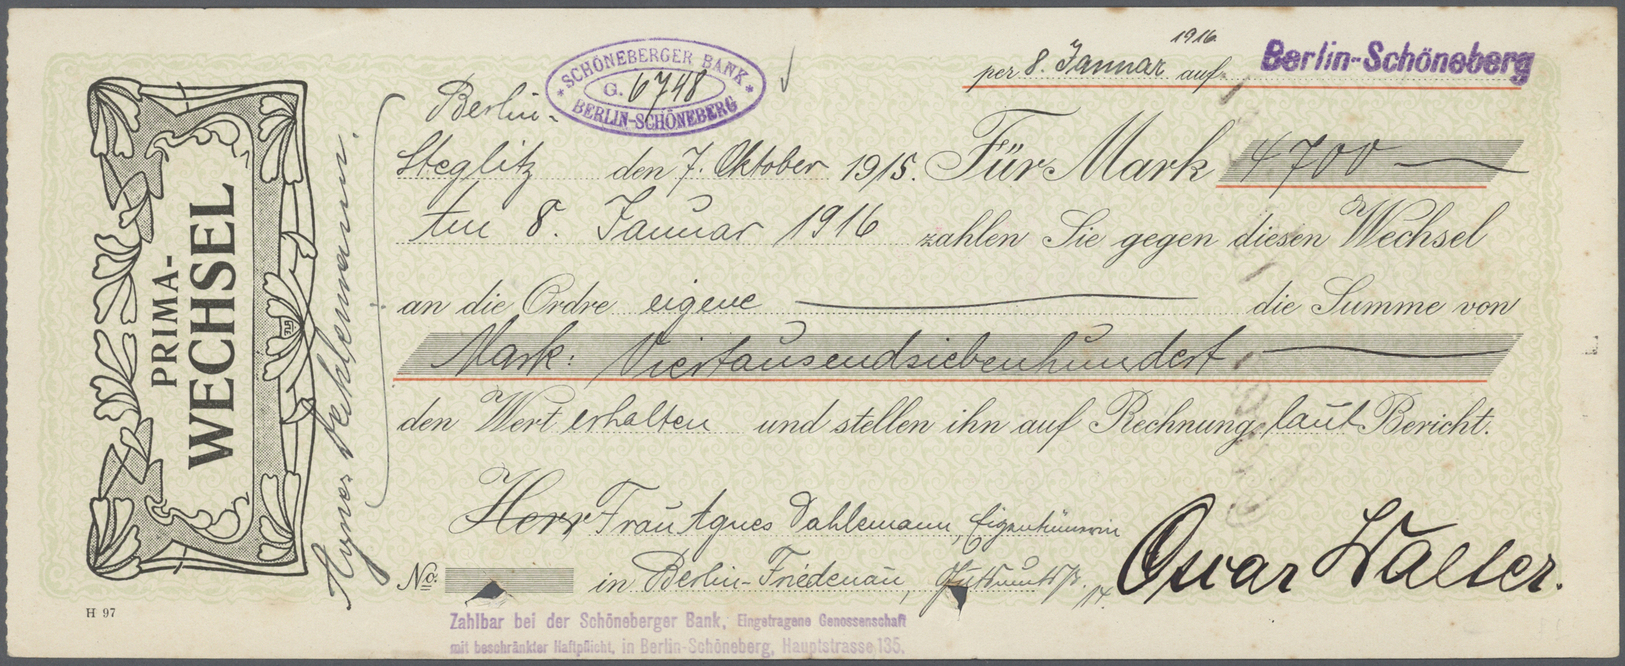 per 8. Januar 1916 auf Berlin-Schöneberg
SCHÖNEBERGER BANK
G. 6748
BERLIN-SCHÖNEBERG
Berlin-
Steglitz den 7. Oktober 1915. Für Mark 4700
Am 8. Januar 1916 zahlen Sie gegen diesen Wechsel
an die Ordre eigene die Summe von
Mark: Viertausendsiebenhundert
den Wert erhalten und stellen ihn auf Rechnung laut Bericht.
Herr Frau Agnes Dahlemann, Eigentümerin
No. in Berlin-Friedenau,
Oscar Walter.
Zahlbar bei der Schöneberger Bank, Eingetragene Genossenschaft
mit beschränkter Haftpflicht, in Berlin-Schöneberg, Hauptstrasse 135.
PRIMA-
WECHSEL
Agnes Dahlemann.
H 97